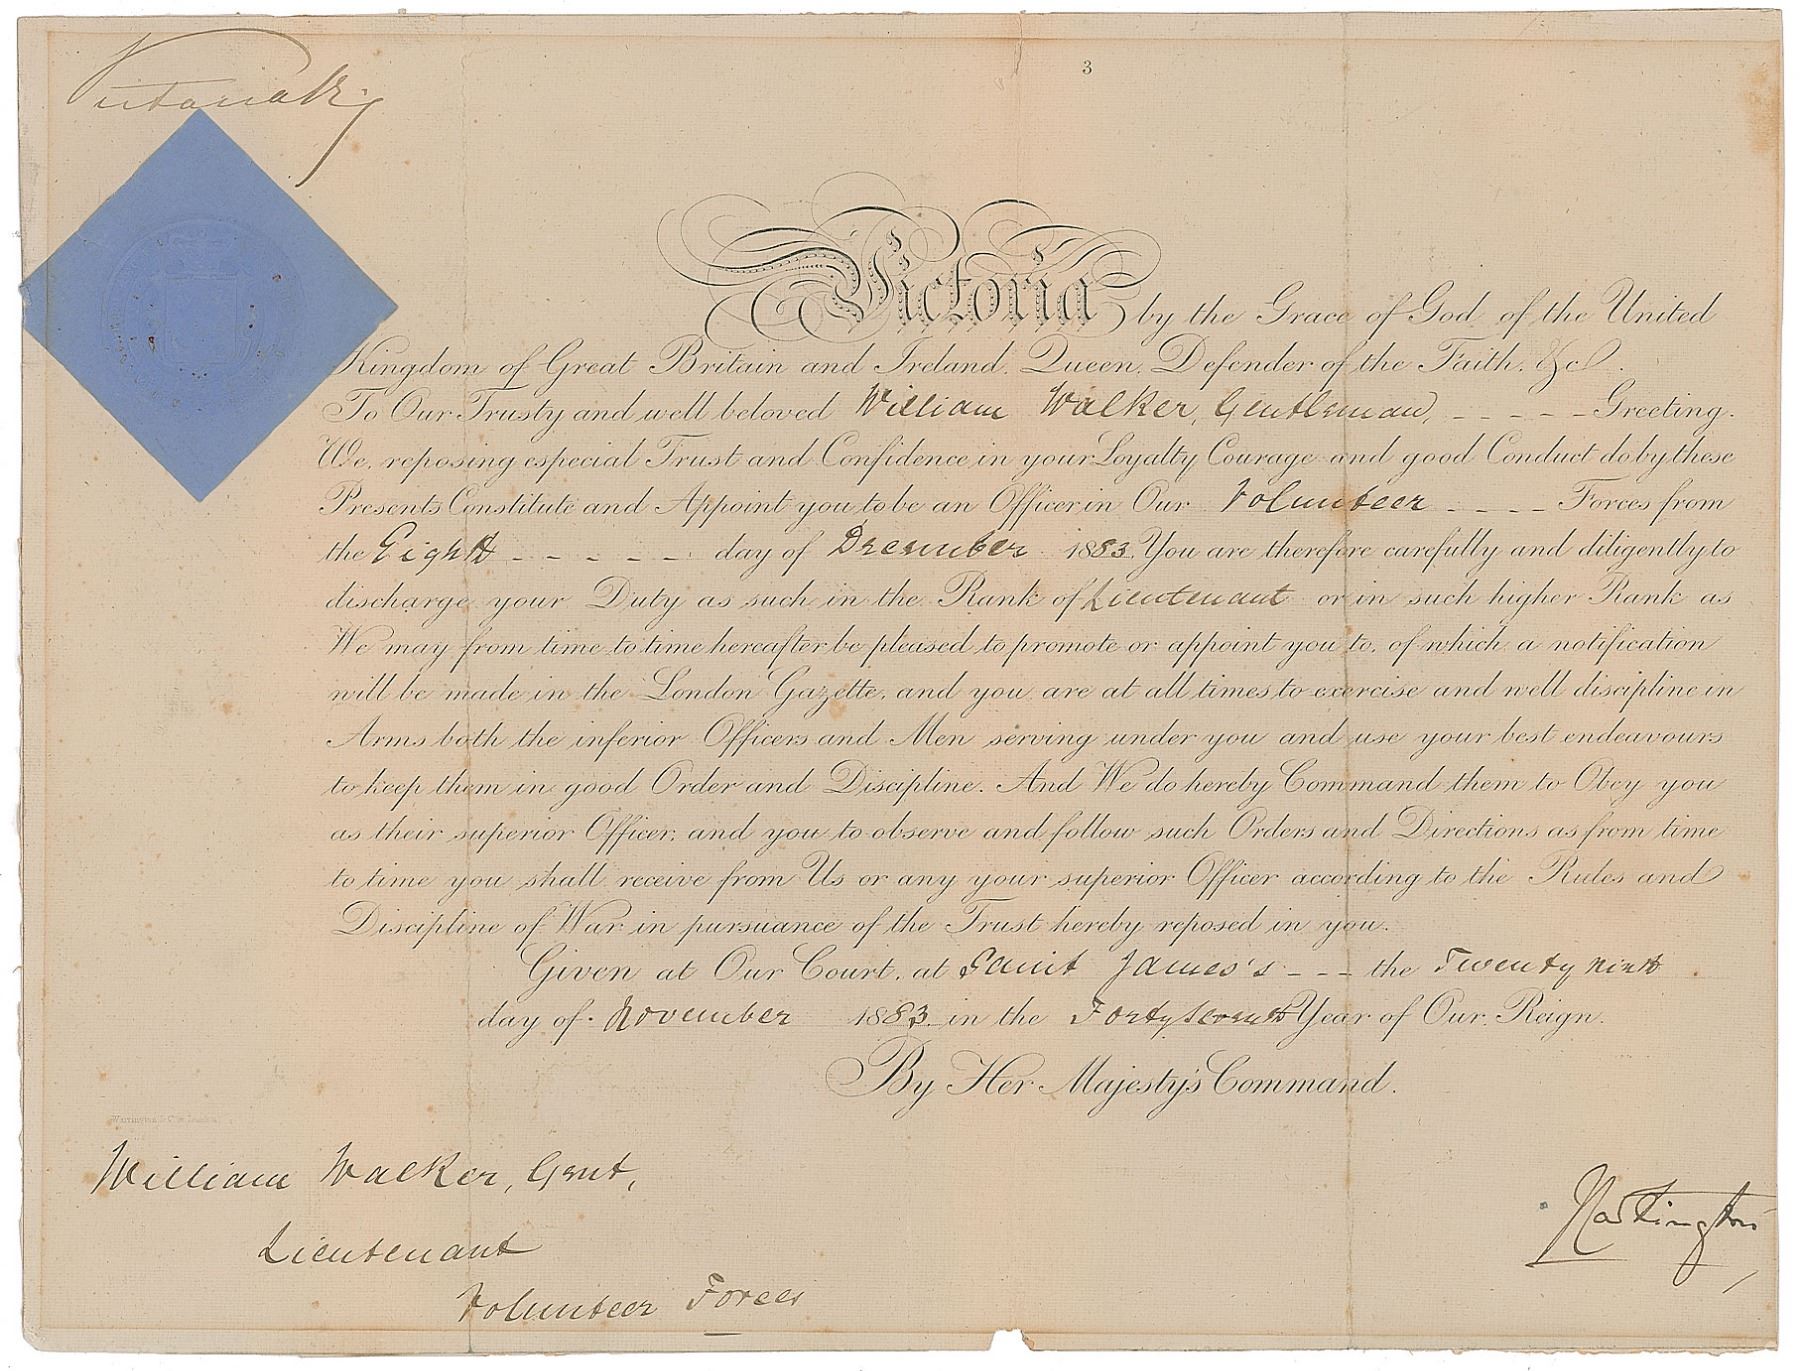 Victoria R.
3
Victoria by the Grace of God of the United
Kingdom of Great Britain and Ireland, Queen, Defender of the Faith, &c.
To Our Trusty and well beloved William Walker, Gentleman, - - - - - Greeting.
We, reposing especial Trust and Confidence in your Loyalty Courage and good Conduct do by these
Presents Constitute and Appoint you to be an Officer in Our Volunteer - - - - Forces from
the Eighth - - - - - day of December 1883. You are therefore carefully and diligently to
discharge your Duty as such in the Rank of Lieutenant or in such higher Rank as
We may from time to time hereafter be pleased to promote or appoint you to, of which a notification
will be made in the London Gazette, and you are at all times to exercise and well discipline in
Arms both the inferior Officers and Men serving under you and use your best endeavours
to keep them in good Order and Discipline. And We do hereby Command them to Obey you
as their superior Officer, and you to observe and follow such Orders and Directions as from time
to time you shall receive from Us or any your superior Officer according to the Rules and
Discipline of War in pursuance of the Trust hereby reposed in you.
Given at Our Court, at Saint James's - - - the Twenty ninth
day of November 1883 in the Forty seventh Year of Our Reign.
By Her Majesty's Command.
Warrington & Co London
William Walker, Gent,
Lieutenant
Volunteer Forces
Hartington